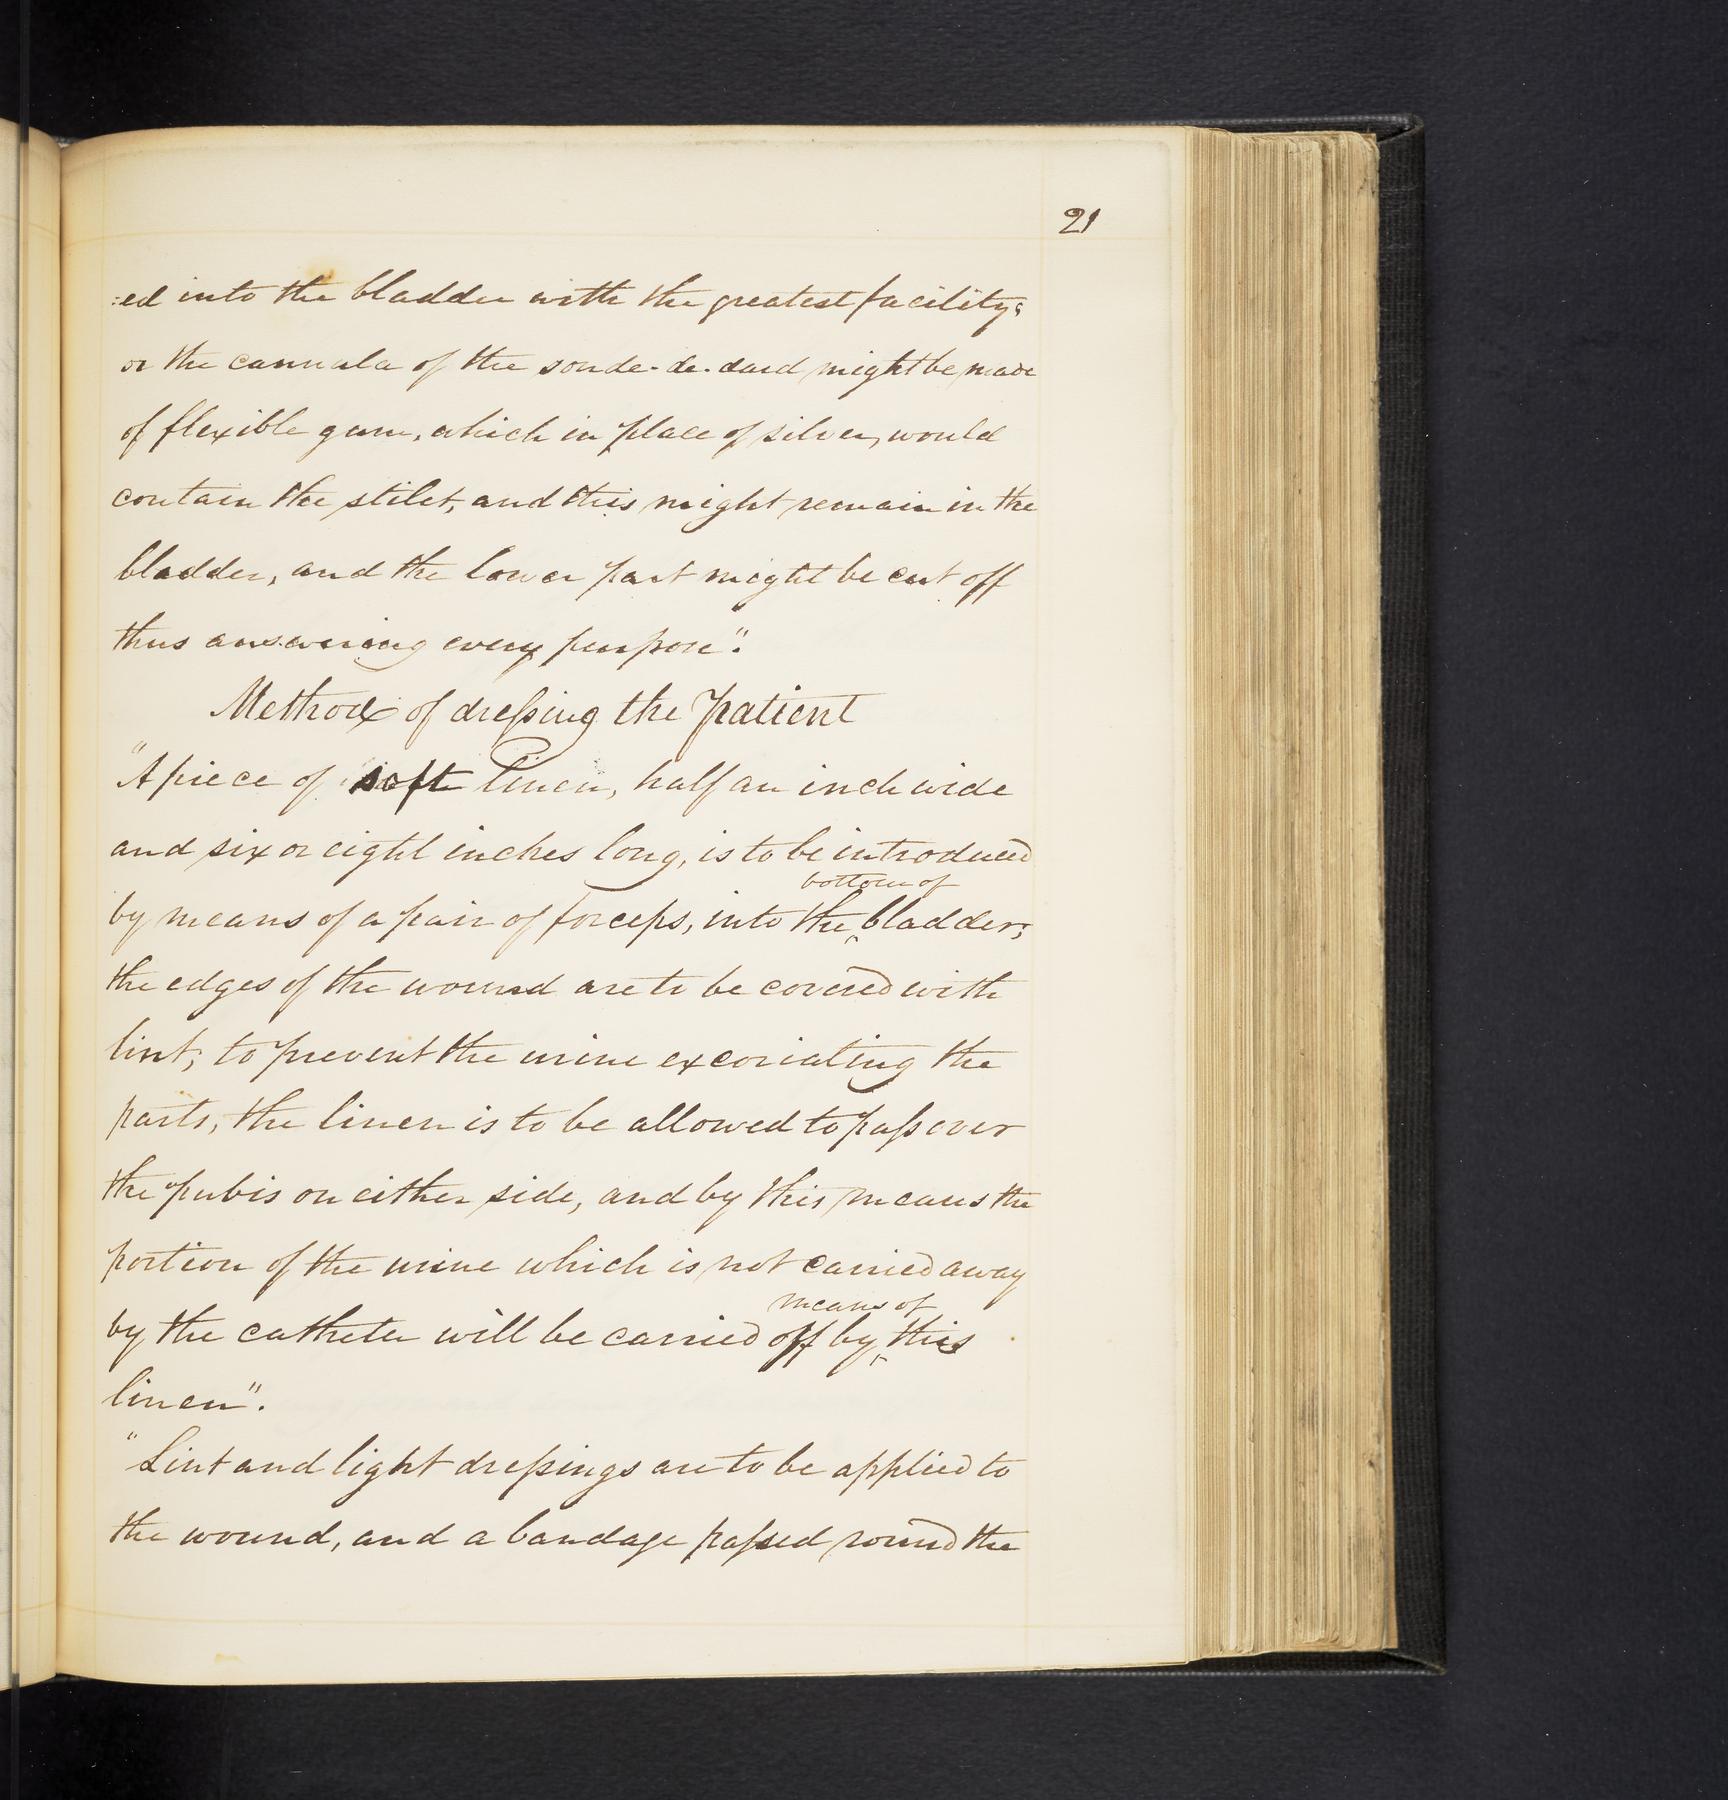 21
:ed into the bladder with the greatest facility;
or the cannula of the sonde-de-dard might be made
of flexible gum, which in place of silver, would
contain the stilet, and this might remain in the
bladder, and the lower part might be cut off
thus answering every purpose".
Method of dreſsing the patient
"A piece of soft linen, half an inch wide
and six or eight inches long, is to be introduced
bottom of
by means of a pair of forceps, into the ‸ bladder;
the edges of the wound are to be covered with
lint; to prevent the urine excoriating the
parts, the linen is to be allowed to paſs over
the pubis on either side, and by this means the
portion of the urine which is not carried away
means of
by the catheter will be carried off by ‸ this
linen".
"Lint and light dreſsings are to be applied to
the wound, and a bandage paſsed round the